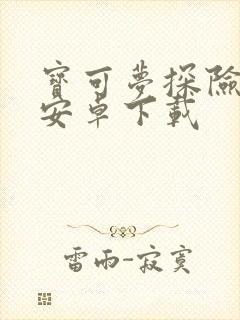 寶可夢探險
安卓下載
雷雨-寂寞